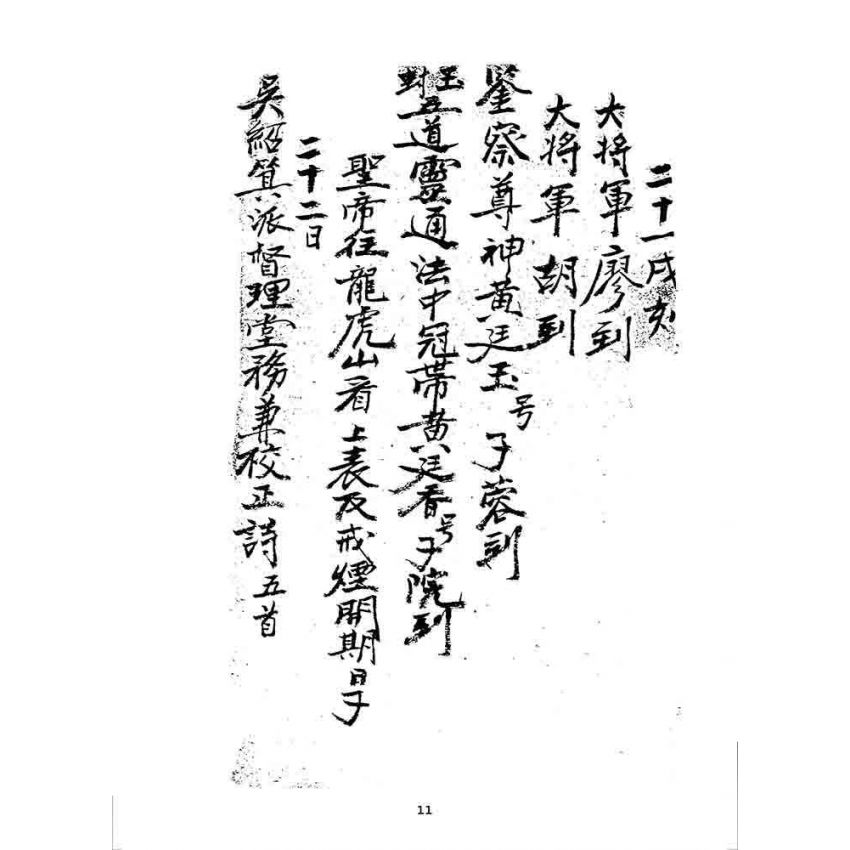 二十一戌刻
大將軍廖到
大將軍胡到
鑒察尊神黃廷玉号子蓉到
玉封五道靈通法中冠帶黃廷香号子院到
聖帝往龍虎山看上表及戒煙開期日子
二十二日
吳紹箕派督理堂務兼校正詩五首
11